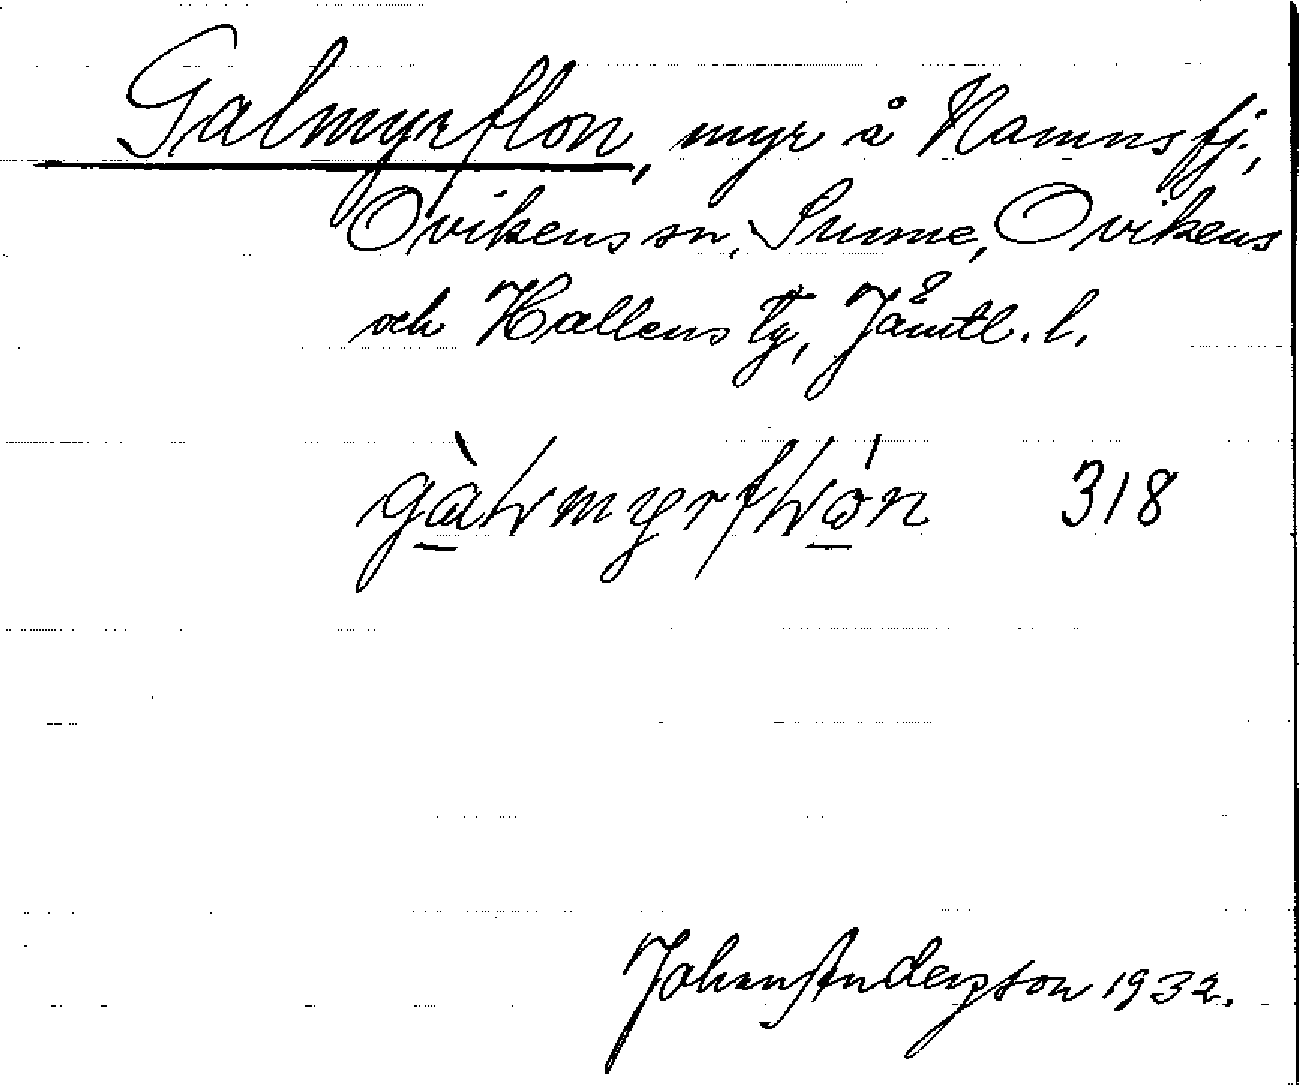 Galmyrflon, myr å Hamnsfj.,
Ovikens sn, Sunne, Ovikens
och Hallens tg, Jämtl. l.
gàlmyrflón 318
Johan Anderzson 1932.